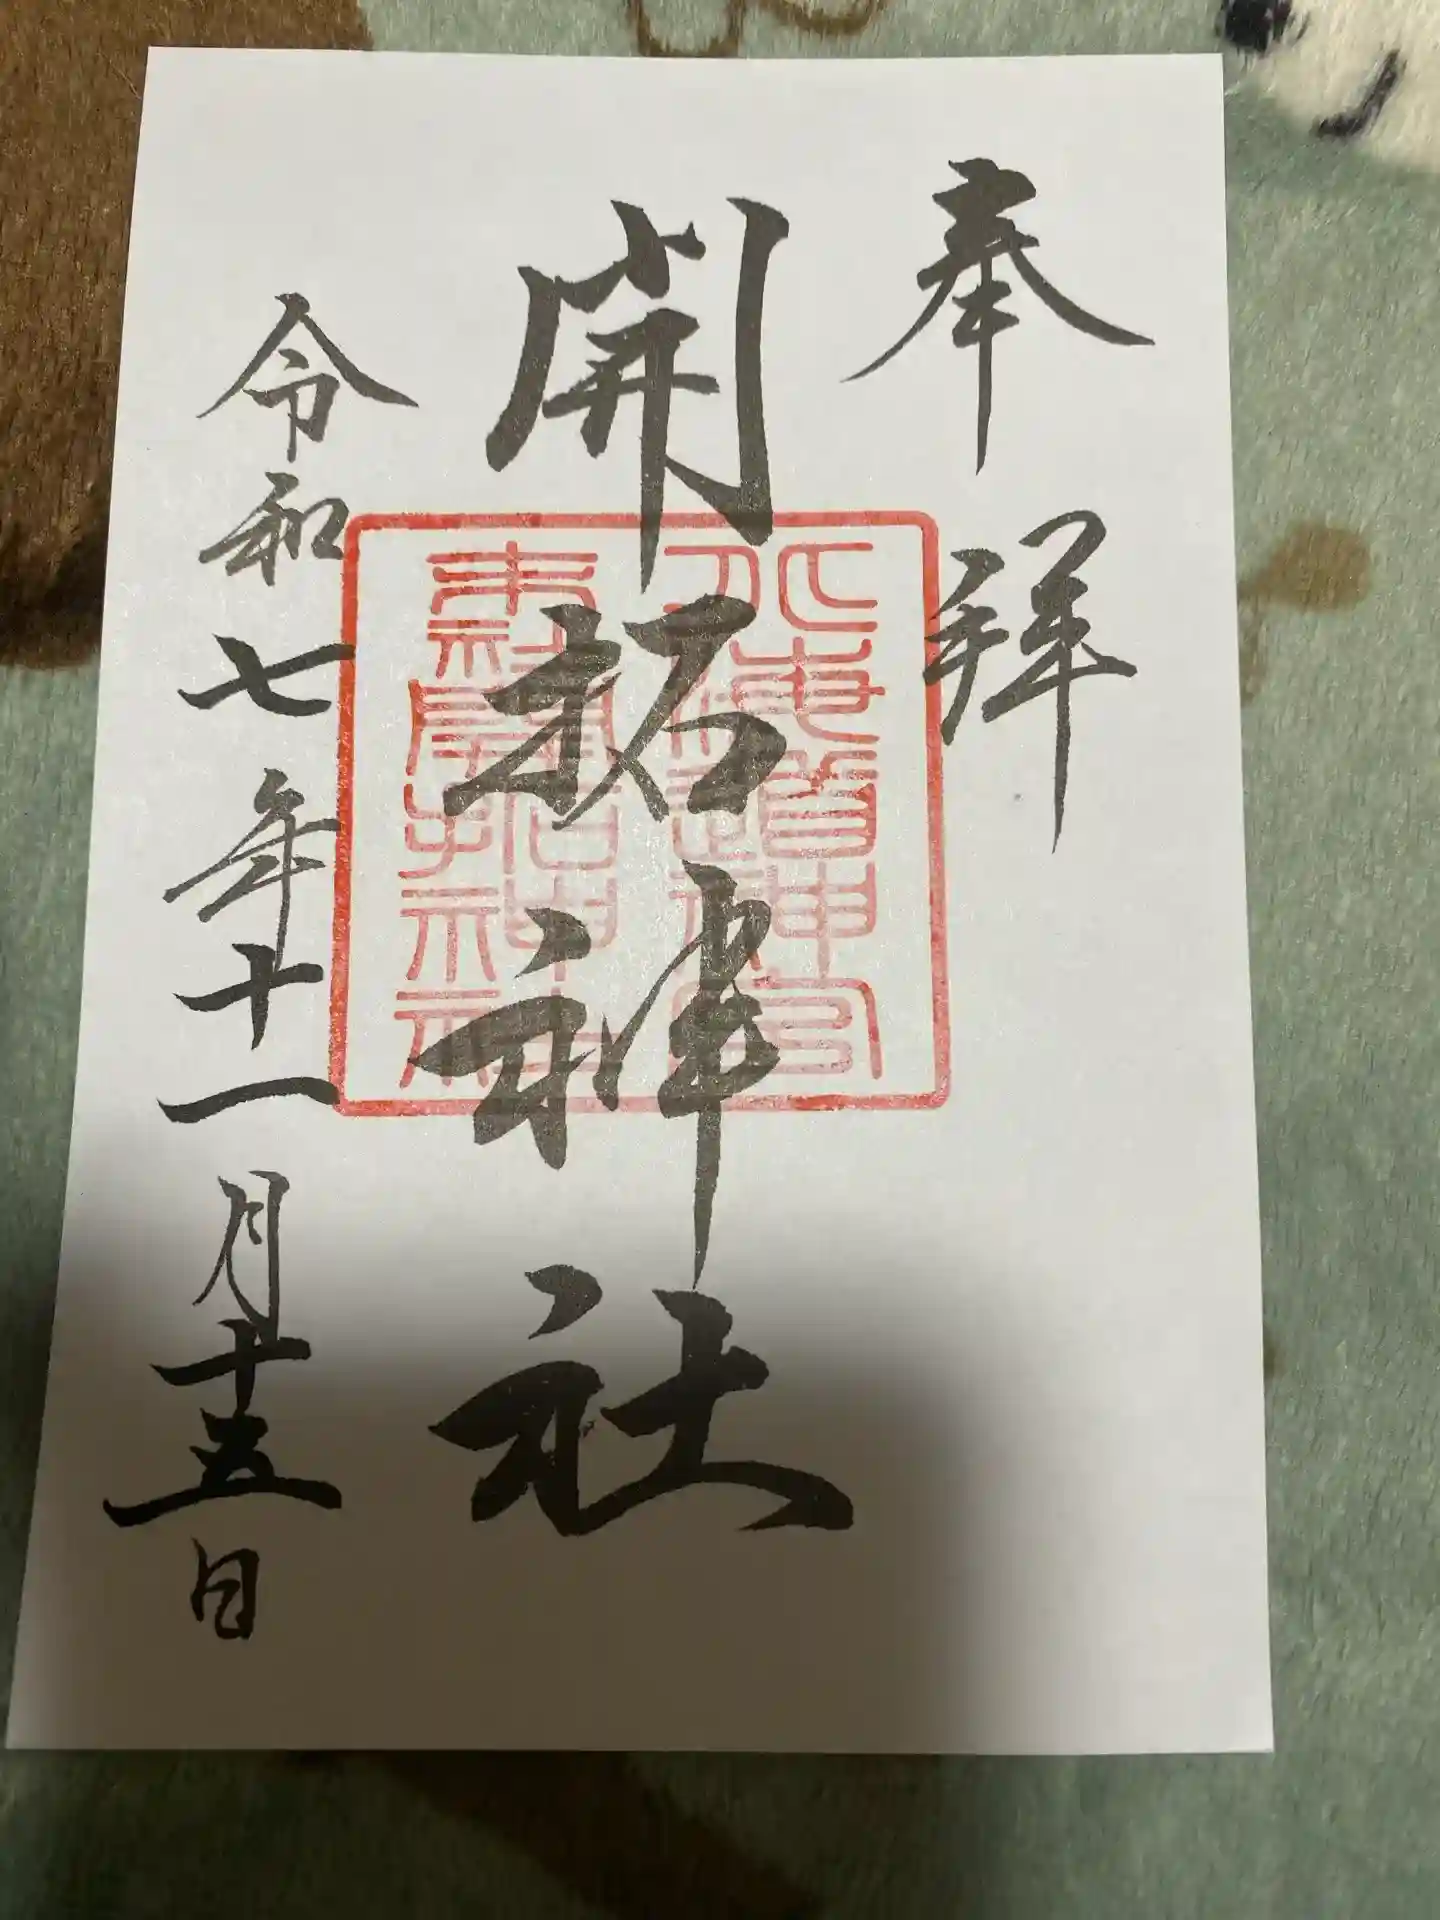 奉拝
開拓神社
北海道神宮
末社開拓神社
令和七年十一月十五日